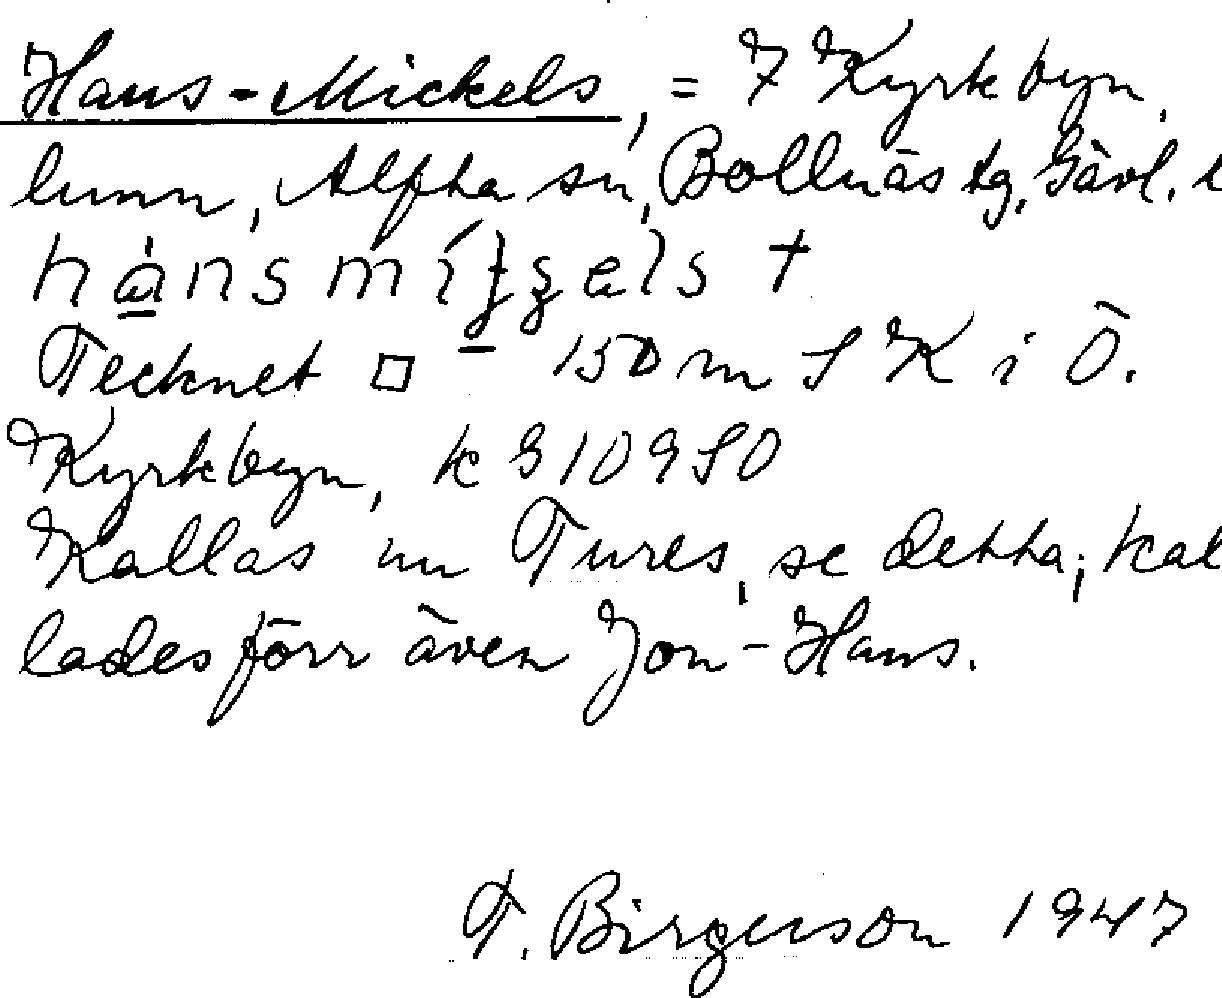 Hans-Mickels, = 7 Kyrkbyn,
lunn, Alfta sn, Bollnäs tg, Gävl. l
Tecknet □ 150 m S K i Ö.
Kyrkbyn, k 910950
Kallas nu Tures, se detta; kal
lades förr även Jon-Hans.
T. Birgerson 1947